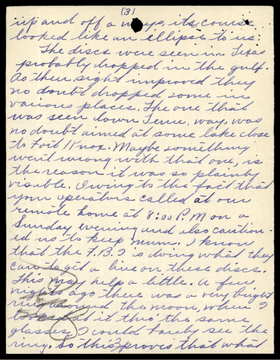 (3)
up and off a ways, its course
looked like an ellipse to us.
The discs were seen in Texas
probably dropped in the gulf.
As their sight improved they
no doubt dropped some in
various places. The one that
was seen down Tenn. way, was
no doubt aimed at some lake close
to Fort Knox. Maybe something
went wrong with that one, is
the reason it was so plainly
visible. Owing to the fact that
your operators called at our
remote home at 8:00 P.M on a
Sunday evening and also caution-
ed us to keep mum, I know
that the F.B.I is doing what they
can to get a line on these discs.
This may help a little. A few
nights ago there was a very bright
ring around the moon, when I
looked at it thru the same
glasses, I could barely see the
ring. So this proves that what